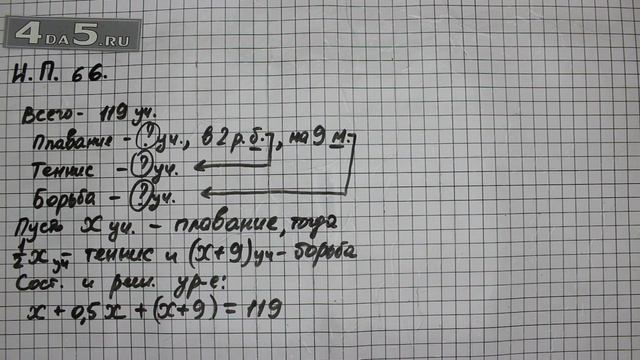 4DA5.RU
Н.П. 66.
Всего - 119 уч.
Плавание - ? уч., в 2 р. б., на 9 м.
Теннис - ? уч.
Борьба - ? уч.
Пусть x уч. - плавание, тогда
1/2 x уч - теннис и (x+9) уч - борьба
Сост. и реш. ур-е:
x + 0,5x + (x+9) = 119